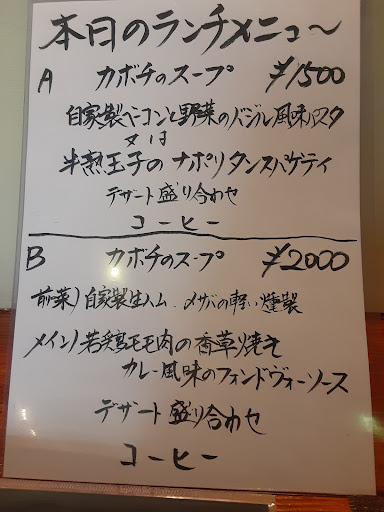 本日のランチメニュ〜
A カボチのスープ ¥1500
自家製ベーコンと野菜のバジル風味パスタ
又は
半熟玉子のナポリタンスパゲティ
デザート盛り合わせ
コーヒー
B カボチのスープ ¥2000
前菜) 自家製生ハム、〆サバの軽い燻製
メイン) 若鶏モモ肉の香草焼き
カレー風味のフォンドヴォーソース
デザート盛り合わせ
コーヒー